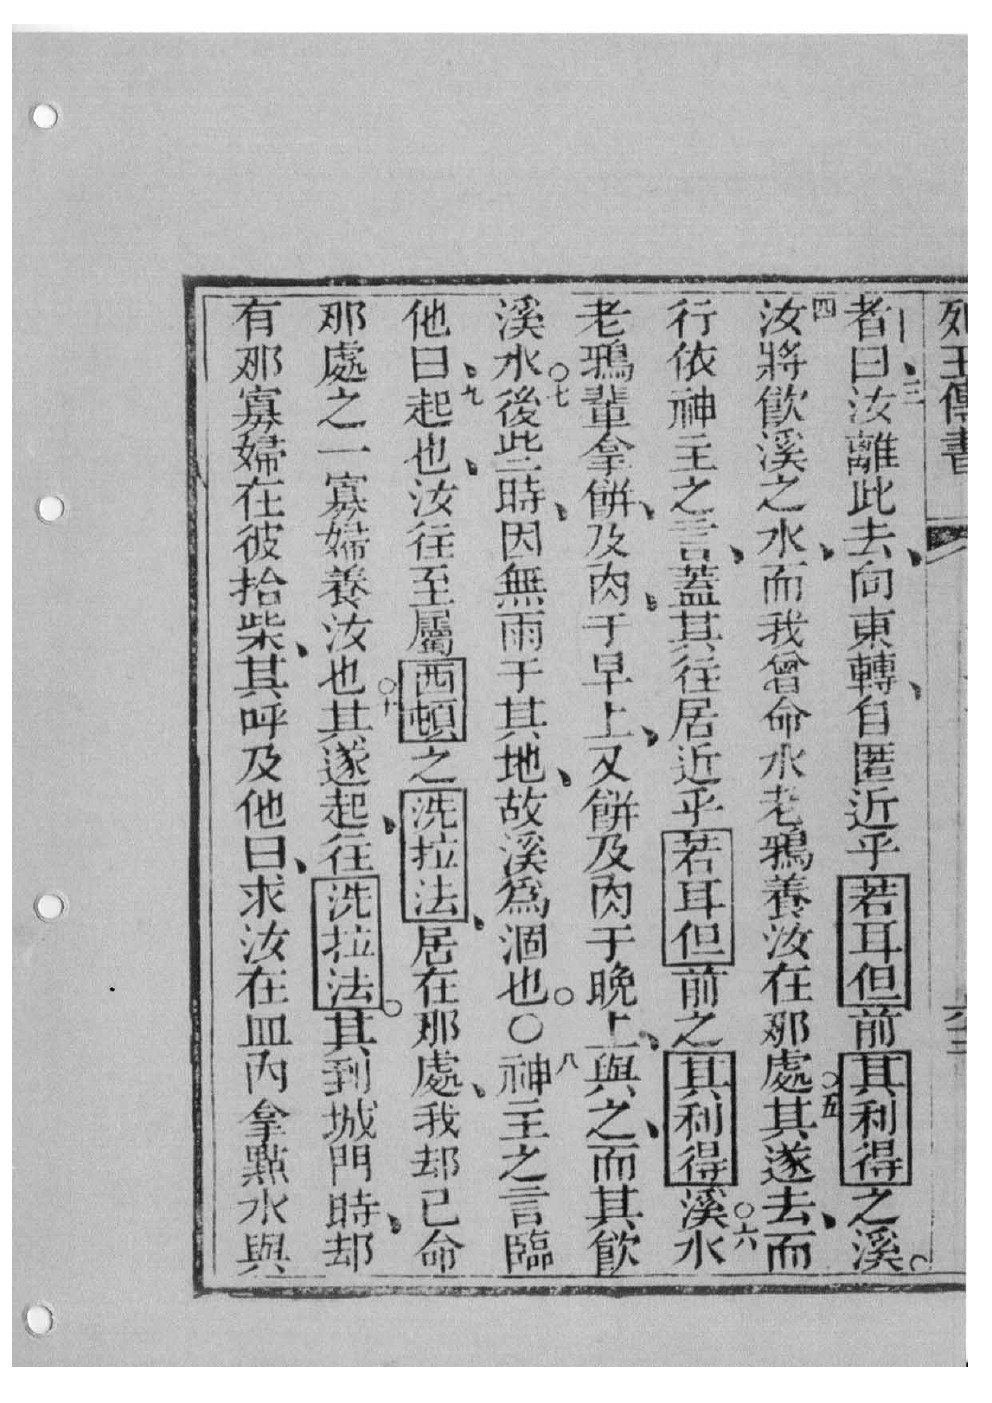 列王傳書 六十三
者曰、三汝離此去、向東轉、自匿近乎若耳但前其利得之溪。
四汝將飮溪之水、而我曾命水老鴉養汝在那處。五其遂去、而
行依神主之言、蓋其往居近乎若耳但前之其利得溪水。六
老鴉輩拿餅、及肉、于早上、又餅及肉于晚上、與之、而其飮
溪水。七後此一時、因無雨于其地、故溪爲涸也。○八神主之言臨
他曰、九起也、汝往至屬西頓之洗拉法、居在那處、我却已命
那處之一寡婦養汝也。十其遂起、往洗拉法。其到城門時、却
有那寡婦在彼拾柴、其呼及他曰、求汝在皿內拿點水與